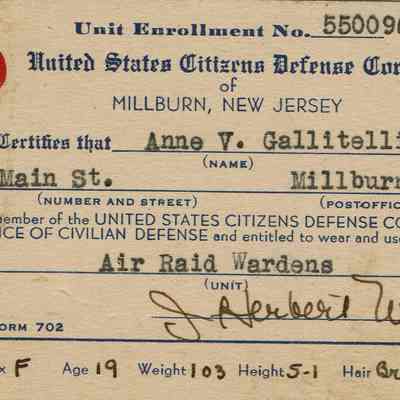 Unit Enrollment No. 55009
United States Citizens Defense Cor
of
MILLBURN, NEW JERSEY
Certifies that Anne V. Gallitelli
(NAME)
Main St. Millburn
(NUMBER AND STREET) (POSTOFFIC
member of the UNITED STATES CITIZENS DEFENSE CO
ICE OF CIVILIAN DEFENSE and entitled to wear and use
Air Raid Wardens
(UNIT)
J. Herbert
ORM 702
x F Age 19 Weight 103 Height 5-1 Hair Br